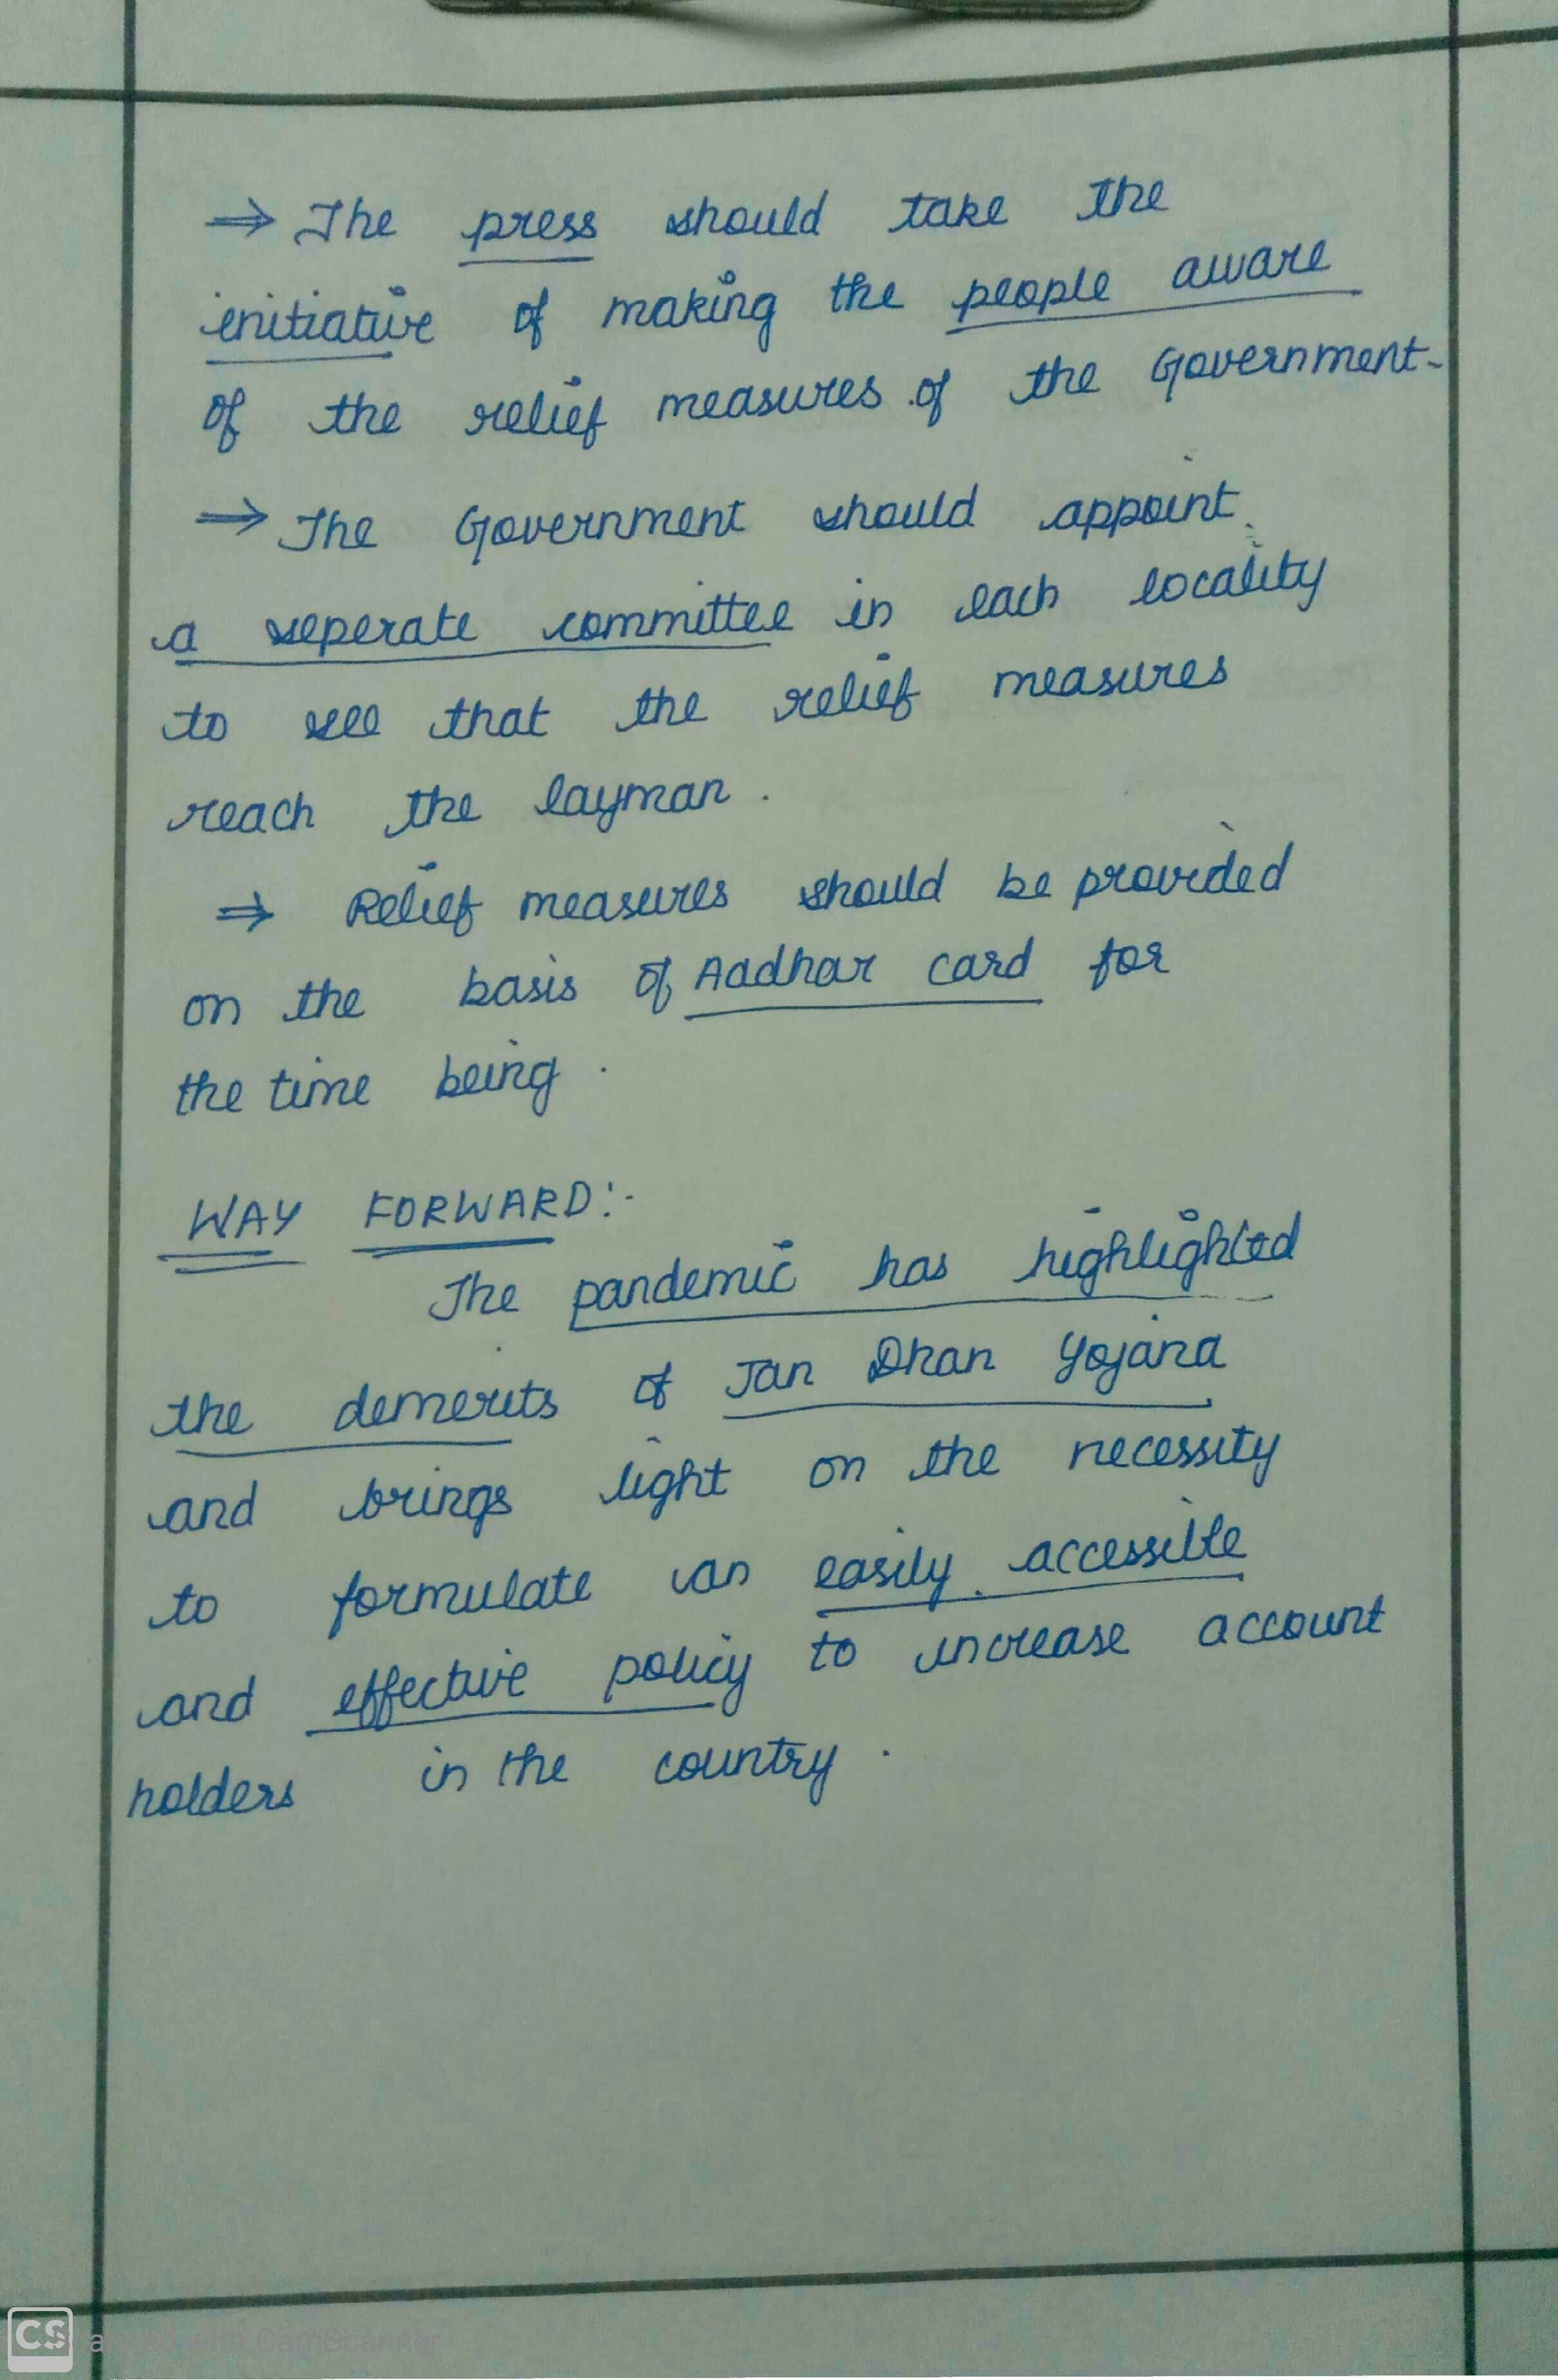 ⇒ The press should take the
initiative of making the people aware
of the relief measures of the Government.
⇒ The Government should appoint
a seperate committee in each locality
to see that the relief measures
reach the layman.
⇒ Relief measures should be provided
on the basis of Aadhar card for
the time being.
WAY FORWARD:-
The pandemic has highlighted
the demerits of Jan Dhan Yojana
and brings light on the necessity
to formulate an easily accessible
and effective policy to increase account
holders in the country.
CS Scanned with CamScanner